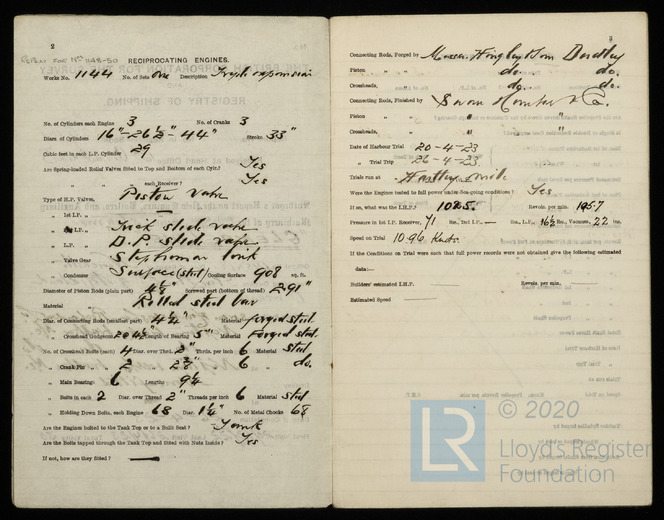 2
REPORT FOR Nos 1148-50
RECIPROCATING ENGINES.
Works No. 1144 No. of Sets One Description Triple expansion
No. of Cylinders each Engine 3 No. of Cranks 3
Diars. of Cylinders 16" - 26½" - 44" Stroke 33"
Cubic feet in each L.P. Cylinder 29
Are Spring-loaded Relief Valves fitted to Top and Bottom of each Cylr.? Yes
" " each Receiver? Yes
Type of H.P. Valves, Piston valve
" 1st I.P. "
" I.P. " Trick slide valve
" L.P. " D.P. Slide valve
" Valve Gear Stephenson link
" Condenser Surface (steel) Cooling Surface 908 sq. ft.
Diameter of Piston Rods (plain part) 4⅞" Screwed part (bottom of thread) 2.91"
Material " Rolled steel bar
Diar. of Connecting Rods (smallest part) 4¼" Material Forged steel
" Crosshead Gudgeons Length of Bearing 5" Material Forged steel
No. of Crosshead Bolts (each) 4 Diar. over Thrd. 2" Thrds. per inch 6 Material steel
" Crank Pin " 2 " 2⅞" " 6 " do.
" Main Bearings 6 Lengths 9¼
" Bolts in each 2 Diar. over Thread 2" Threads per inch 6 Material steel
" Holding Down Bolts, each Engine 68 Diar. 1¼" No. of Metal Chocks 68
Are the Engines bolted to the Tank Top or to a Built Seat? Tank
Are the Bolts tapped through the Tank Top and fitted with Nuts Inside? Yes
If not, how are they fitted?
3
Connecting Rods, Forged by Messrs Hingley & Son Dudley
Piston " " do. do.
Crossheads, " " do. do.
Connecting Rods, Finished by Swan Hunter & Co.
Piston " " "
Crossheads, " " "
Date of Harbour Trial 20-4-23
" Trial Trip 26-4-23.
Trials run at Hartley mile
Were the Engines tested to full power under Sea-going conditions? Yes
If so, what was the I.H.P.? 1025. Revols. per min. 105.7
Pressure in 1st I.P. Receiver, 71 lbs., 2nd I.P., — lbs., L.P., 16½ lbs., Vacuum, 22 ins.
Speed on Trial 10.96 Knots.
If the Conditions on Trial were such that full power records were not obtained give the following estimated
data:—
Builders' estimated I.H.P. Revols. per min.
Estimated Speed
LR
© 2020
Lloyd's Register
Foundation